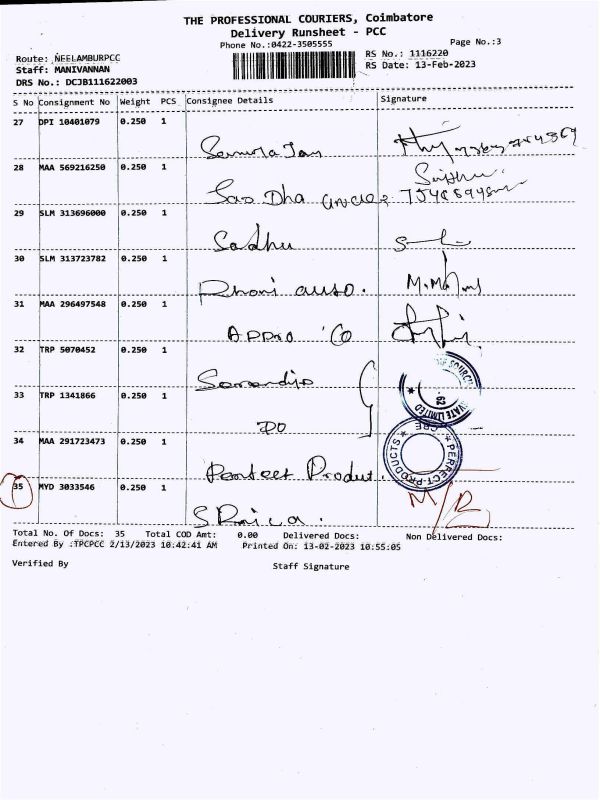 THE PROFESSIONAL COURIERS, Coimbatore
Delivery Runsheet - PCC
Phone No.:0422-3505555
Page No.:3
Route: NEELAMBURPCC
Staff: MANIVANNAN
DRS No.: DCJB111622003
RS No.: 1116220
RS Date: 13-Feb-2023
S No Consignment No Weight PCS Consignee Details Signature
27 DPI 10401079 0.250 1
28 MAA 569216250 0.250 1
Sao Dha
29 SLM 313696000 0.250 1
Sadhu
30 SLM 313723782 0.250 1
Dhani auto.
31 MAA 296497548 0.250 1
Appro 'Co
32 TRP 5070452 0.250 1
33 TRP 1341866 0.250 1
DO
34 MAA 291723473 0.250 1
Produt.
PERFECT-PRODUCTS
CBE
35 MYD 3033546 0.250 1
M/R
Total No. Of Docs: 35 Total COD Amt: 0.00 Delivered Docs: Non Delivered Docs:
Entered By :TPCPCC 2/13/2023 10:42:41 AM Printed On: 13-02-2023 10:55:05
Verified By Staff Signature